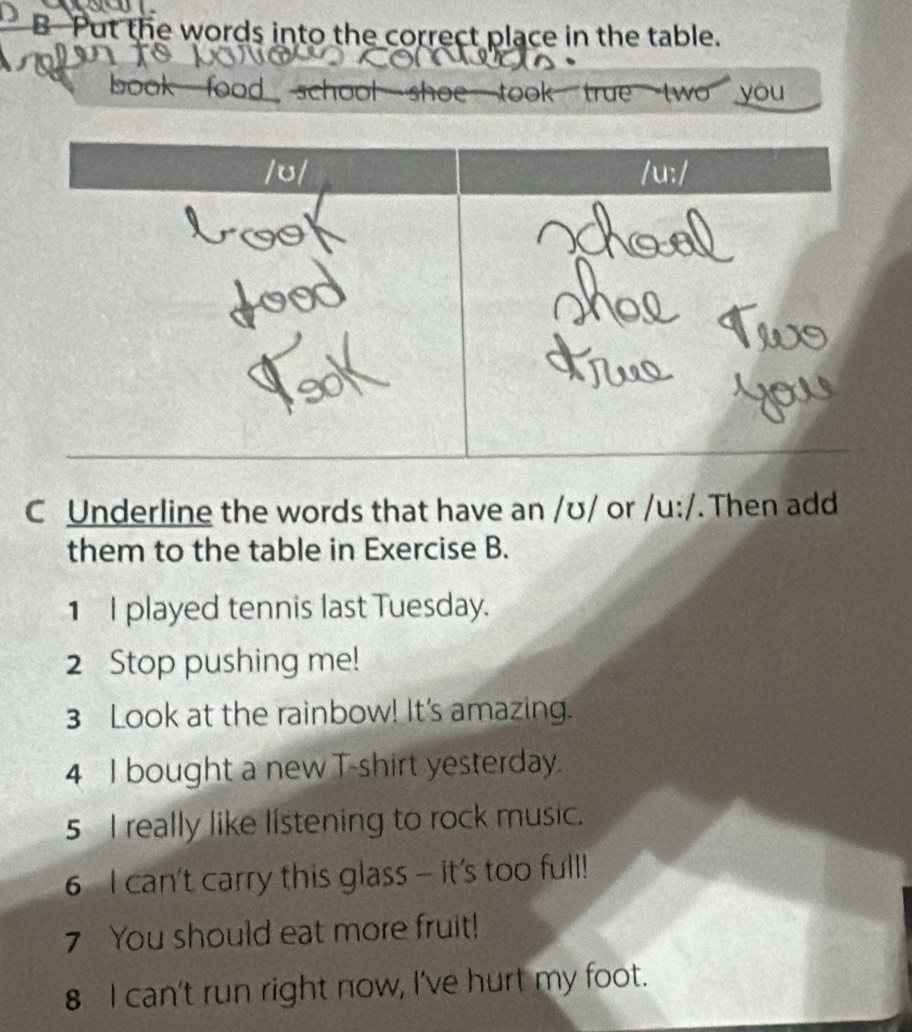 B Put the words into the correct place in the table.
to
book food school shoe took true two you
/ʊ/ /u:/
book school
food shoe two
took true you
C Underline the words that have an /ʊ/ or /u:/. Then add
them to the table in Exercise B.
1 I played tennis last Tuesday.
2 Stop pushing me!
3 Look at the rainbow! It's amazing.
4 I bought a new T-shirt yesterday.
5 I really like listening to rock music.
6 I can't carry this glass – it's too full!
7 You should eat more fruit!
8 I can't run right now, I've hurt my foot.